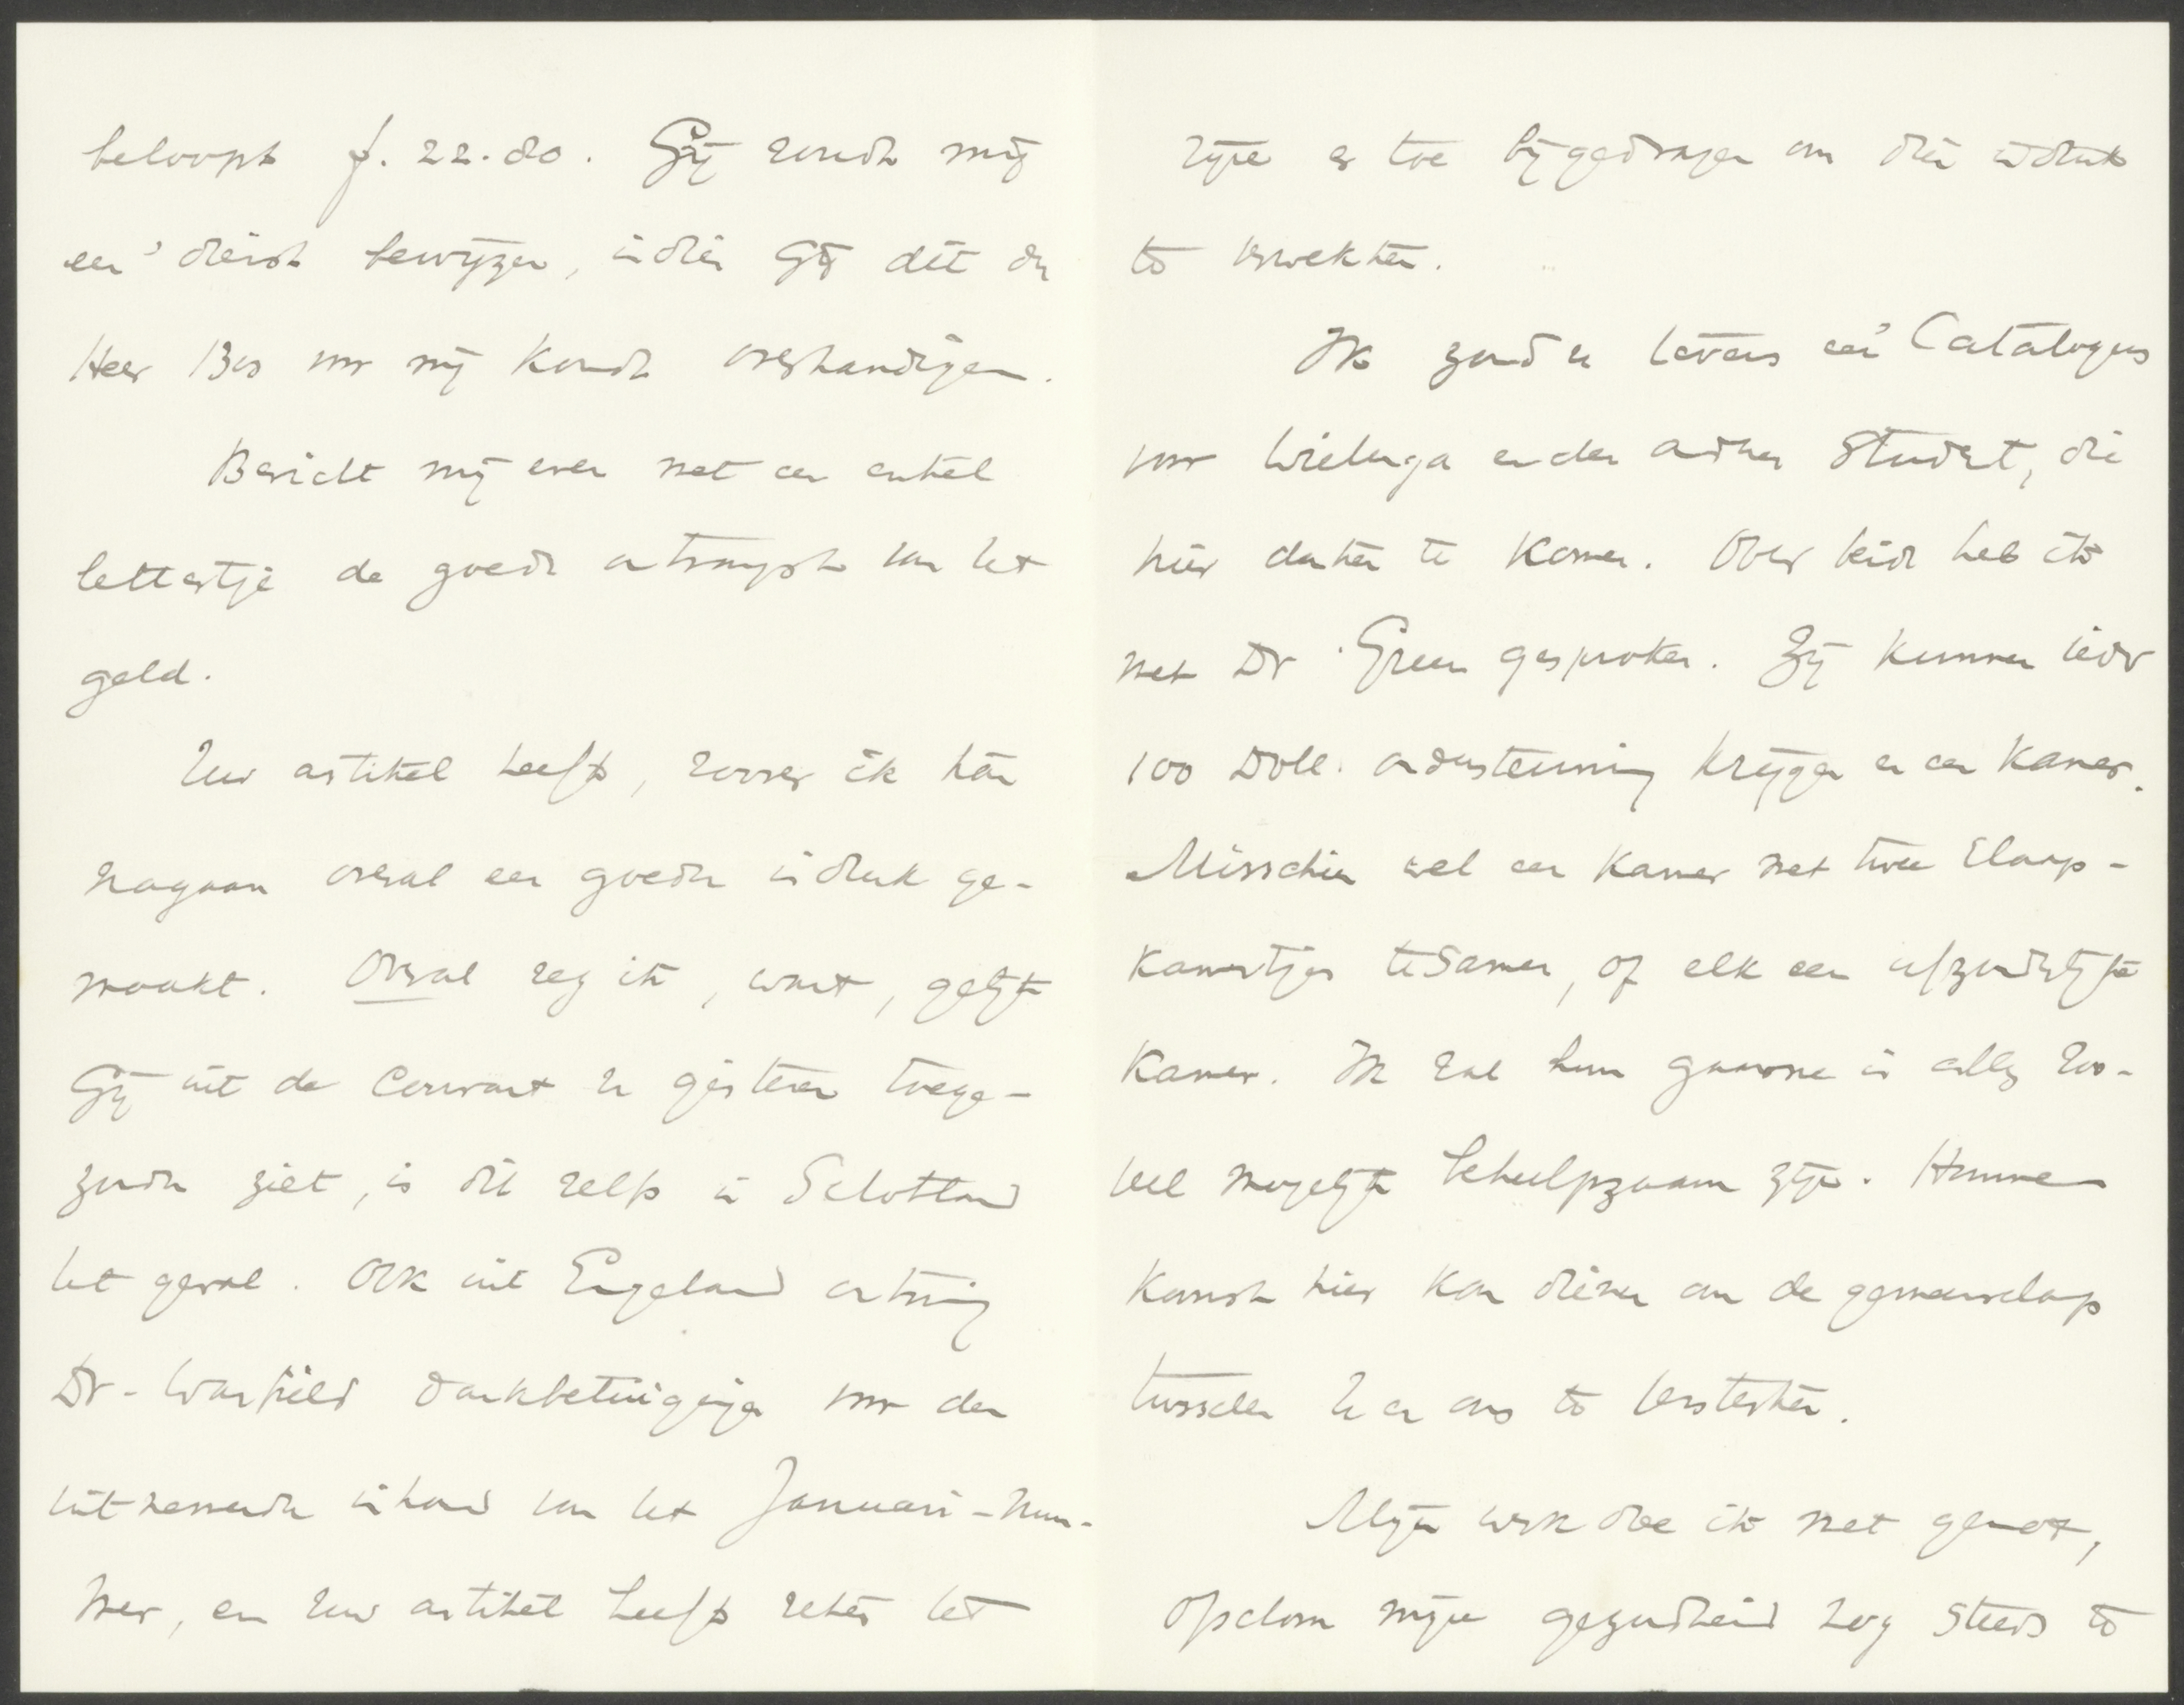 beloopt f. 22.80. Gij zoudt mij
een' dienst bewijzen, indien Gij dit den
Heer Bos voor mij kondt overhandigen.
Bericht mij even met een enkel
lettertje de goede ontvangst van het
geld.
Uw artikel heeft, zoover ik kan
nagaan overal een goeden indruk ge-
maakt. Overal zeg ik, want, gelijk
Gij uit de Courant U gisteren toege-
zonden ziet, is dit zelfs in Schotland
het geval. Ook uit Engeland ontving
Dr. Warfield dankbetuigingen voor den
uitnemenden inhoud van het Januari-num-
mer, en Uw artikel heeft zeker het
zijne er toe bijgedragen om dien indruk
te verwekken.
Ik zond u tevens een' Catalogus
voor Wielenga en den andren student, die
hier denken te komen. Over beide heb ik
met Dr Green gesproken. Zij kunnen ieder
100 Doll. ondersteuning krijgen en een kamer.
Misschien wel een kamer met twee slaap-
kamertjes tesamen, of elk een afzonderlijke
kamer. Ik zal hun gaarne in alles zoo-
veel mogelijk behulpzaam zijn. Hunne
komst hier kan dienen om de gemeenschap
tusschen U en ons te versterken.
Mijn werk doe ik met genot,
ofschoon mijne gezondheid nog steeds te